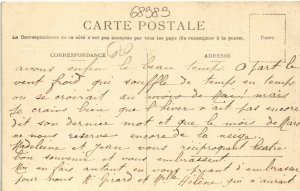 68989
CARTE POSTALE
La Correspondance de ce côté n'est pas acceptée par tous les pays (Se renseigner à la poste).
CORRESPONDANCE
ADRESSE
Timbre
avons enfin le beau temps. A part le
vent froid qui souffle de temps en temps
on se croirait au mois de mai mais
je crains bien que l'hiver n'ait pas encore
dit son dernier mot et que le mois de Mars
ne nous réserve encore de la neige.
Madeleine et Jean vous
bon souvenir et vous embrassent.
Moi en fais autant en vous priant d'embrasser
pour nous Mr Girard et Mlle Hélène qui